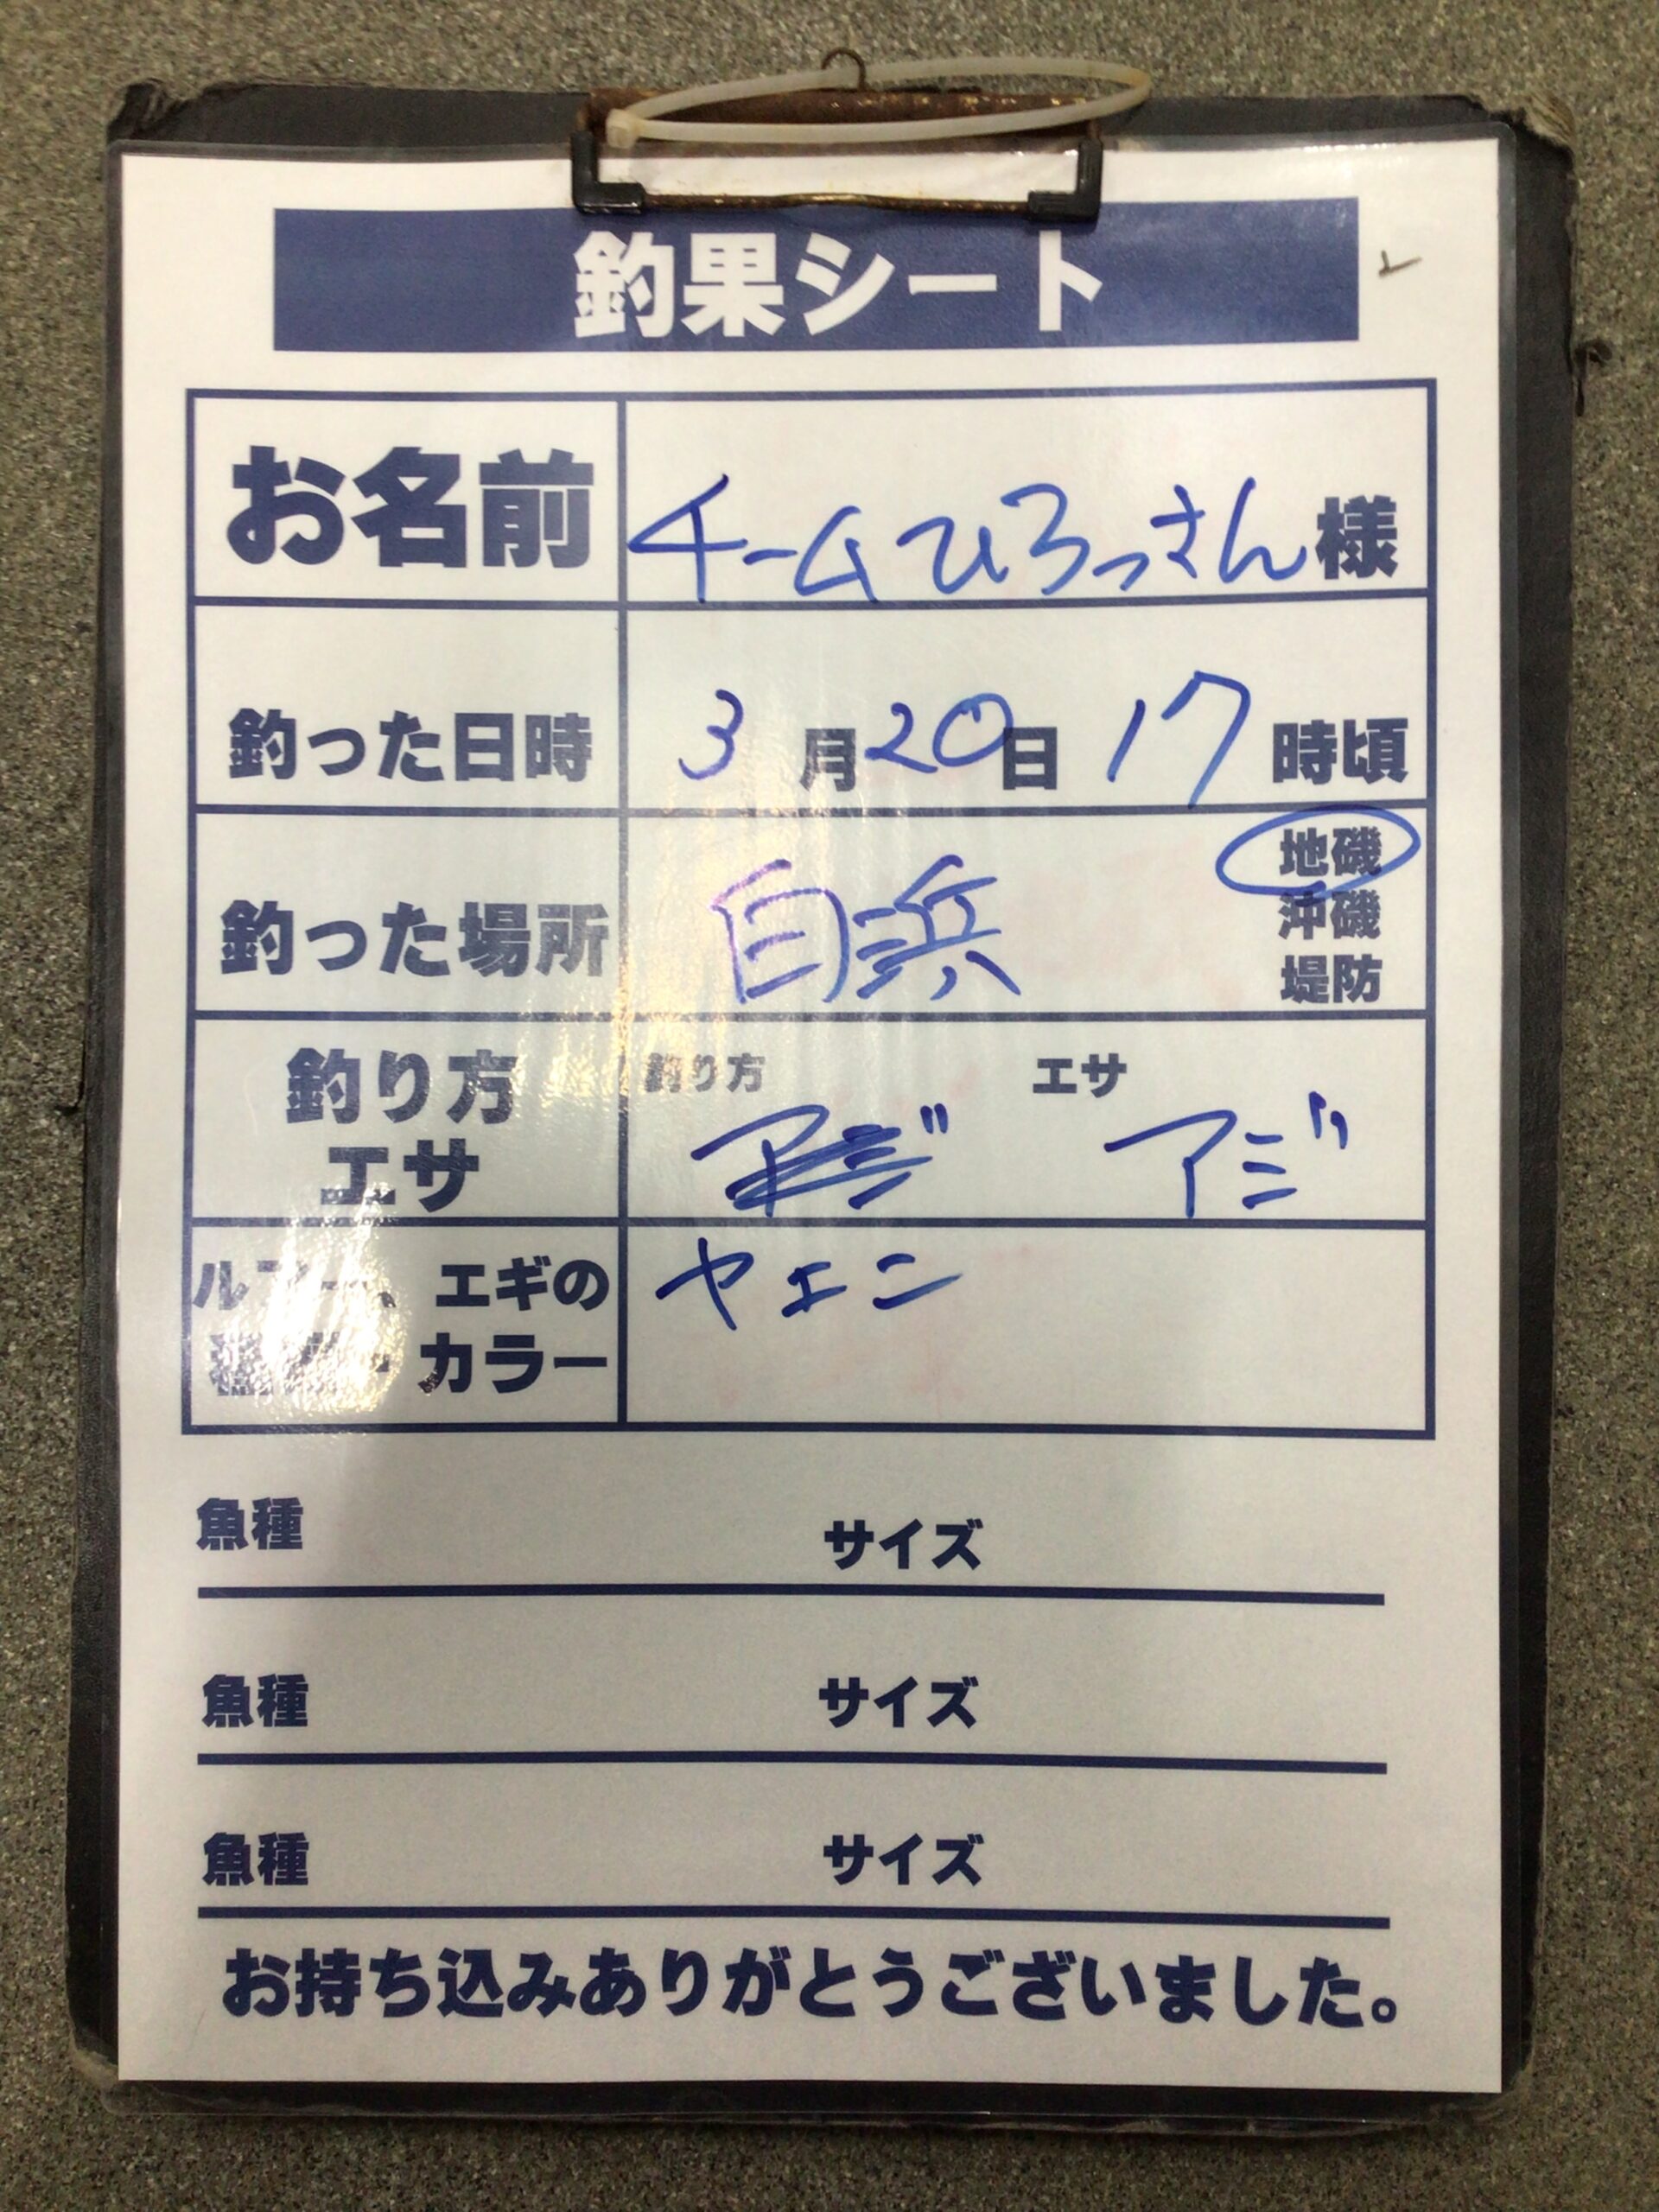 釣果シート
お名前 チームひろっさん 様
釣った日時 3月20日 17時頃
釣った場所 白浜 地磯
沖磯
堤防
釣り方 エサ
釣り方
エサ アジ
ルアー、エギの ヤエン
カラー
魚種 サイズ
魚種 サイズ
魚種 サイズ
お持ち込みありがとうございました。